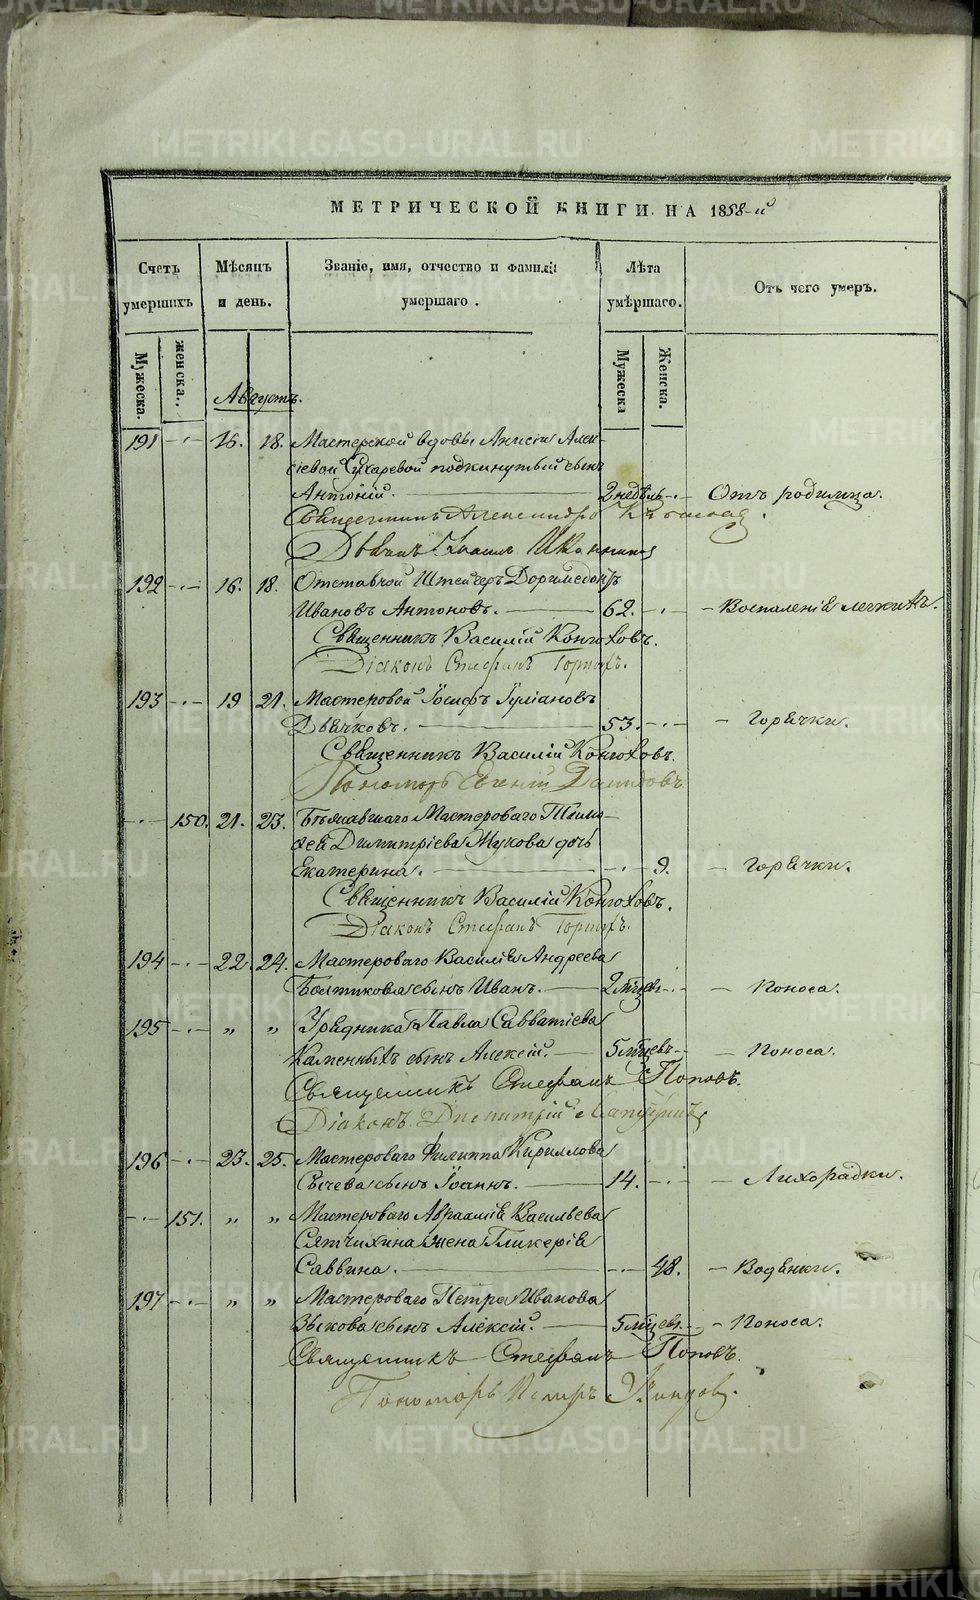 МЕТРИЧЕСКОЙ КНИГИ НА 1858-й
Счетъ умершихъ
Мѣсяцъ и день.
Званіе, имя, отчество и фамилія умершаго.
Лѣта умѣршаго.
Отъ чего умеръ.
Мужеска.
женска.
Мужеска
Женска.
Августъ.
191 -·- 16. 18. Мастерской вдовы Анисіи Алек-
сіевой Сухаревой подкинутый сынъ
Антоній. 2 недѣль -·- Отъ родимца.
Священникъ Александръ
Дьячекъ
192 -·- 16. 18. Отставной Штейгеръ Доримедонтъ
Ивановъ Антоновъ. 62. -·- Воспаленія легкихъ.
Священникъ Василій Конюховъ.
Діаконъ Стефанъ
193 -·- 19 21. Мастеровой Іосифъ Іуліановъ
Дьячковъ. 53. -·- Горячки.
Священникъ Василій Конюховъ.
Пономарь Евгеній Давидовъ
-·- 150. 21. 23. Бѣжавшаго Мастероваго Тимо-
ѳея Димитріева Жукова дочь
Екатерина. -·- 9. Горячки.
Священникъ Василій Конюховъ.
Діаконъ Стефанъ
194 -·- 22. 24. Мастероваго Василія Андреева
Болтикова сынъ Иванъ. 2 мѣсяц. -·- Поноса.
195 -·- „ „ Урядника Павла Савватіева
Каменныхъ сынъ Алексій. 5 мѣсяцевъ -·- Поноса.
Священникъ Стефанъ Поповъ.
Діаконъ Димитрій
196 -·- 23. 25. Мастероваго Филиппа Кириллова
Сычева сынъ Іоаннъ. 14. -·- Лихорадки.
-·- 151. „ „ Мастероваго Авраамія Васильева
Сятчихина жена Гликерія
Саввина. -·- 48. Водянки.
197 -·- „ „ Мастероваго Петра Иванова
Зыкова сынъ Алексій. 5 мѣсяцев. -·- Поноса.
Священникъ Стефанъ Поповъ.
Пономарь Петръ
METRIKI.GASO-URAL.RU